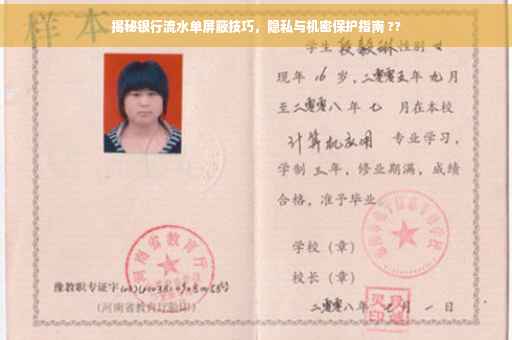 揭秘银行流水单屏蔽技巧，隐私与机密保护指南??
样本
学生段毅琳性别女
现年16岁，二零零五年九月
至二零零八年七月在本校
计算机应用 专业学习，
学制三年，修业期满，成绩
合格，准予毕业。
学校（章）
校长（章）
二零零八年七月一日
河南省教育厅
豫教职专证字
（河南省教育厅验印）